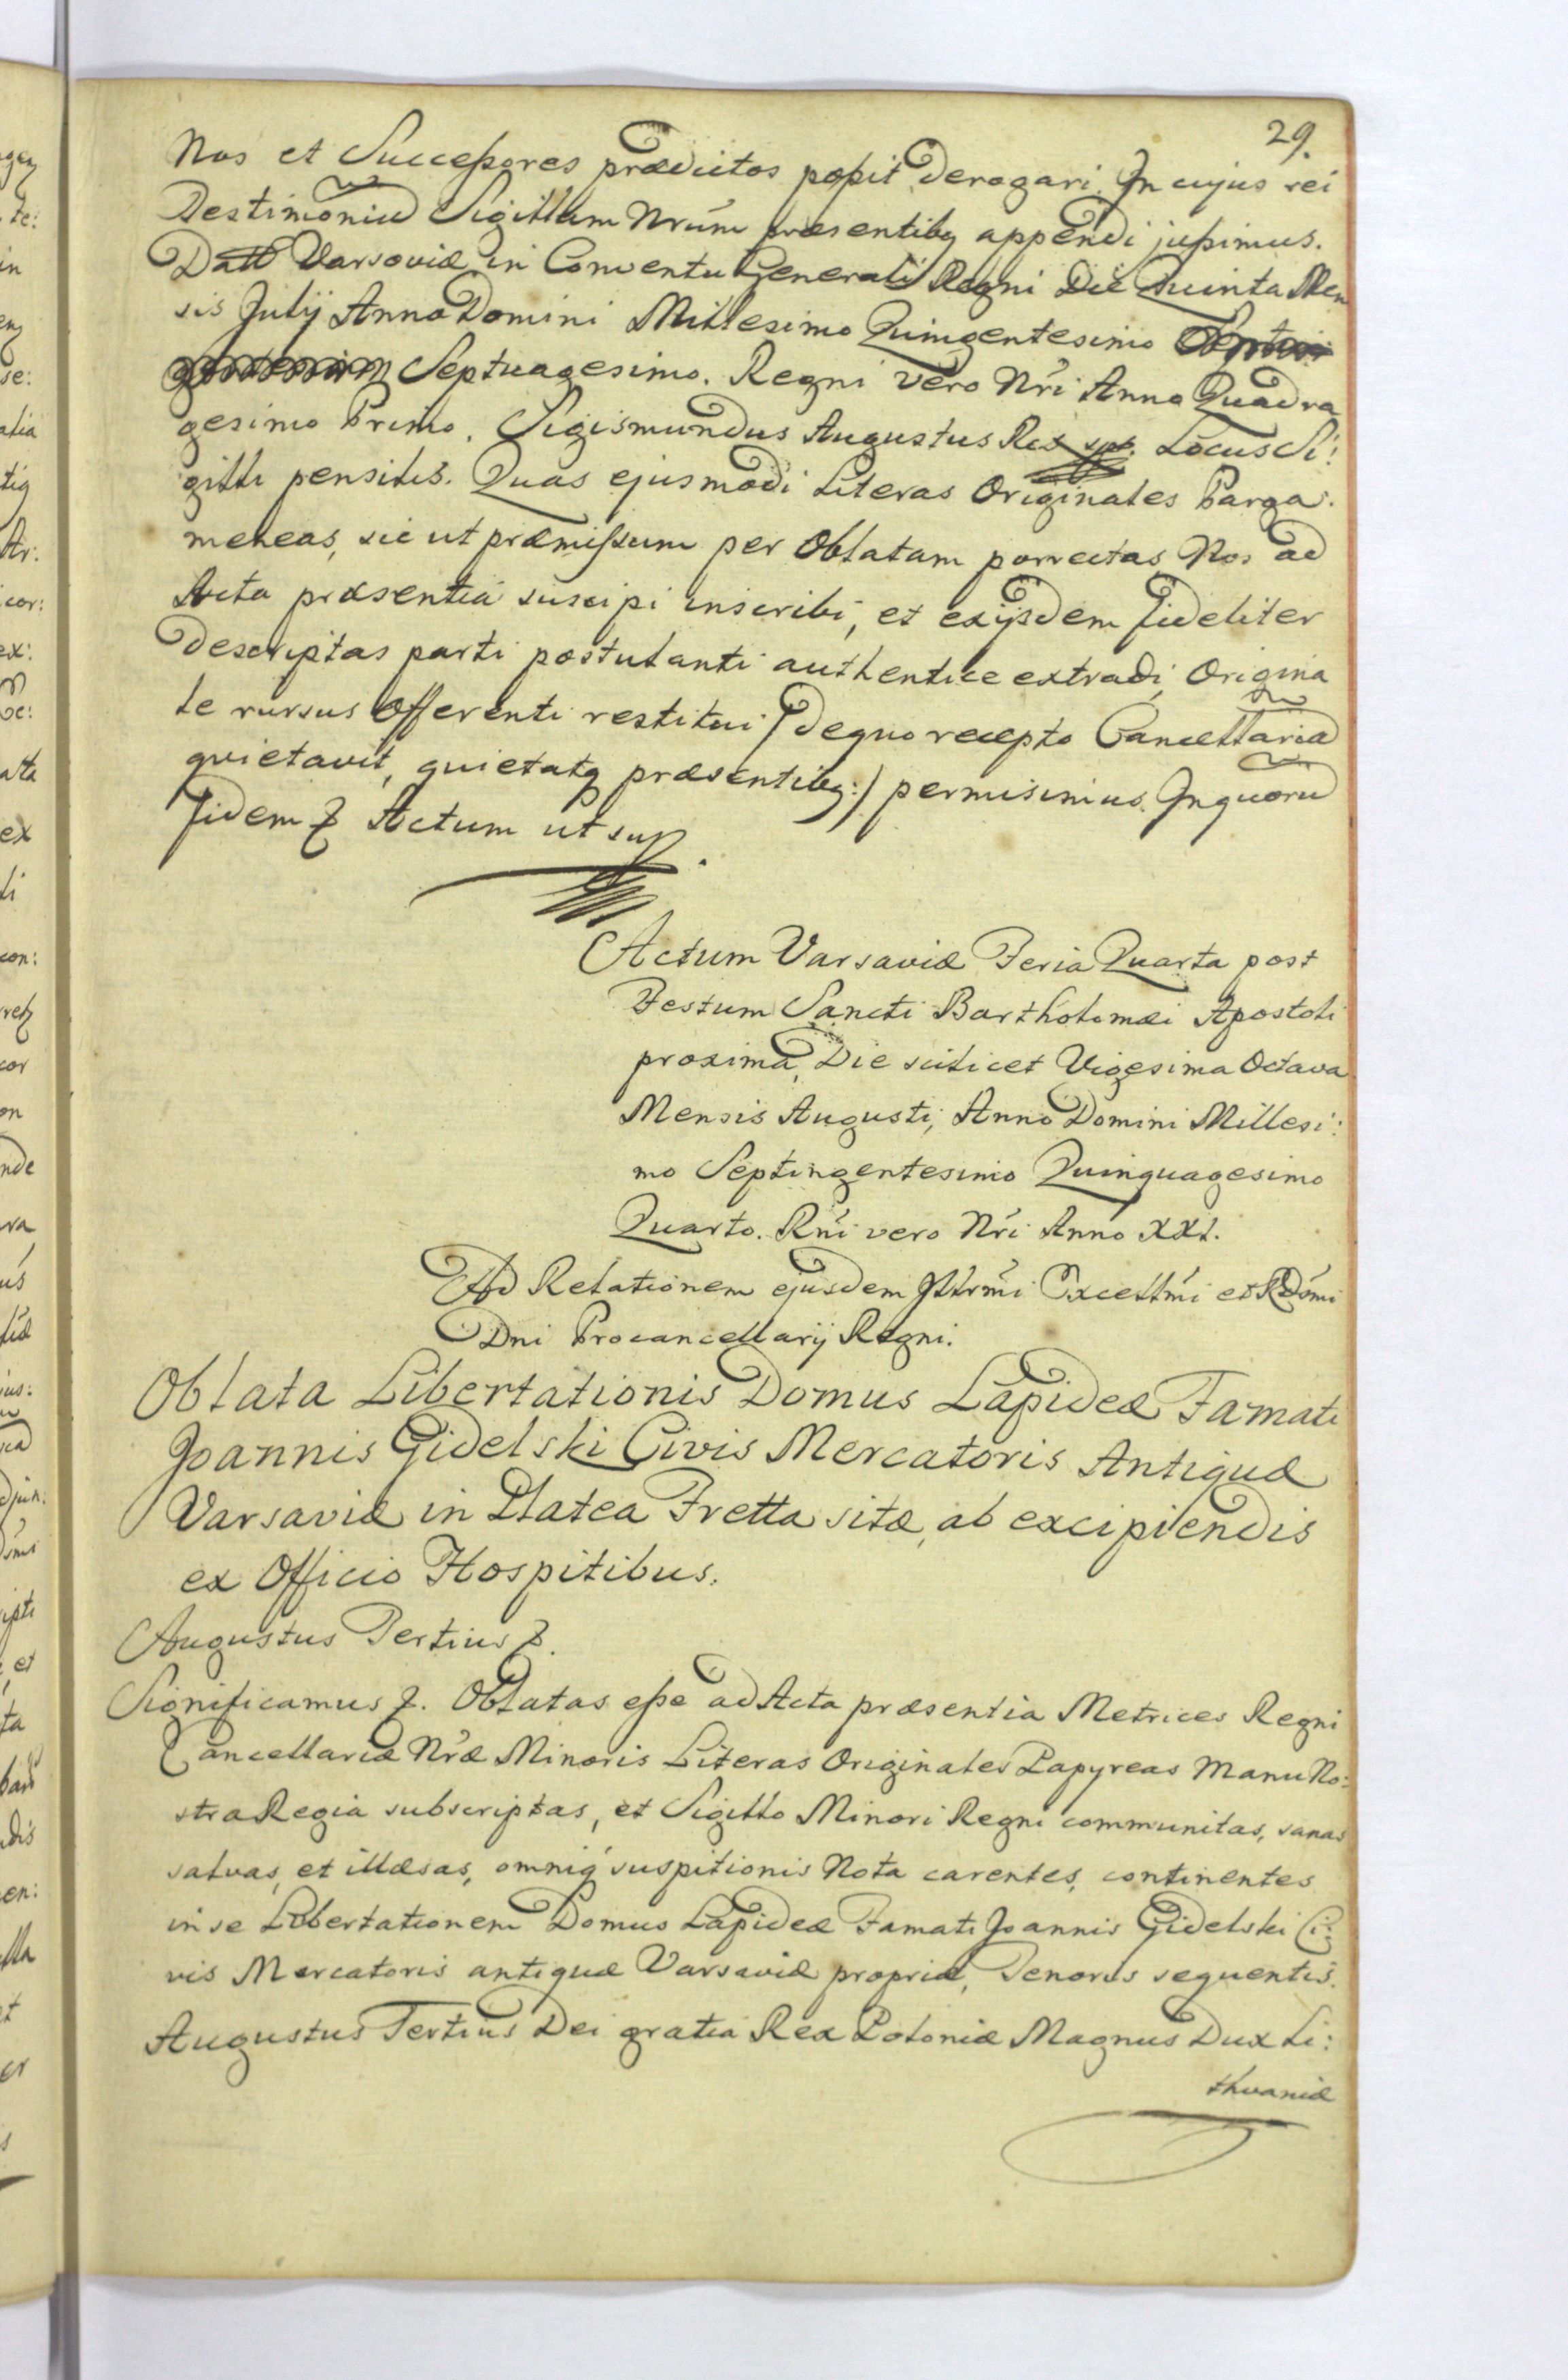 29.
Nos et Successores prædictos possit derogari. In cujus rei
Testimoniu Sigillum Nrum præsentibq appendi jussimus.
Datt Varsoviæ in Conventu Generali Regni Die Quinta Men
sis Julij Anno Domini Millesimo Quingentesimo
Septuagesimo. Regni vero Nri Anno Quadra
gesimo Primo. Sigismundus Augustus Rex Locus Si:
gilli pensilis. Quas ejusmodi Literas Originales Parga:
meneas, sic ut præmissum per Oblatam porrectas Nos ad
Acta præsentia suscipi inscribi, et exijsdem fideliter
descriptas parti postulanti authentice extradi, Origina
le rursus Offerenti restitui /: dequo recepto Cancellariã
quietavit, quietatq præsentibq :/ permisimus. Inquoru
fidem & Actum ut sup
Actum Varsaviæ Feria Quarta post
Festum Sancti Bartholomæi Apostoli
proxima, Die scilicet Vigesima Octava
Mensis Augusti, Anno Domini Millesi:
mo Septingentesimo Quinquagesimo
Quarto. Rni vero Nri Anno XXI.
Ad Relationem ejusdem Illrmi Excellmi et Rdmi
Dni Procancellarij Regni.
Oblata Libertationis Domus Lapideæ Famati
Joannis Gidelski Civis Mercatoris Antiquæ
Varsaviæ in Platea Fretta sitæ, ab excipiendis
ex Officio Hospitibus.
Augustus Tertius &.
Significamus &. Oblatas esse ad Acta præsentia Metrices Regni
Cancellariæ Nræ Minoris Literas Originales Papyreas Manu No:
stra Regia subscriptas, et Sigillo Minori Regni communitas, sanas
salvas, et illæsas, omniq suspitionis Nota carentes, continentes
in se Libertationem Domus Lapideæ Famati Joannis Gidelski Ci:
vis Mercatoris antiquæ Varsaviæ propriæ, Tenoris sequentis.
Augustus Tertius Dei gratia Rex Poloniæ Magnus Dux Li:
thvaniæ